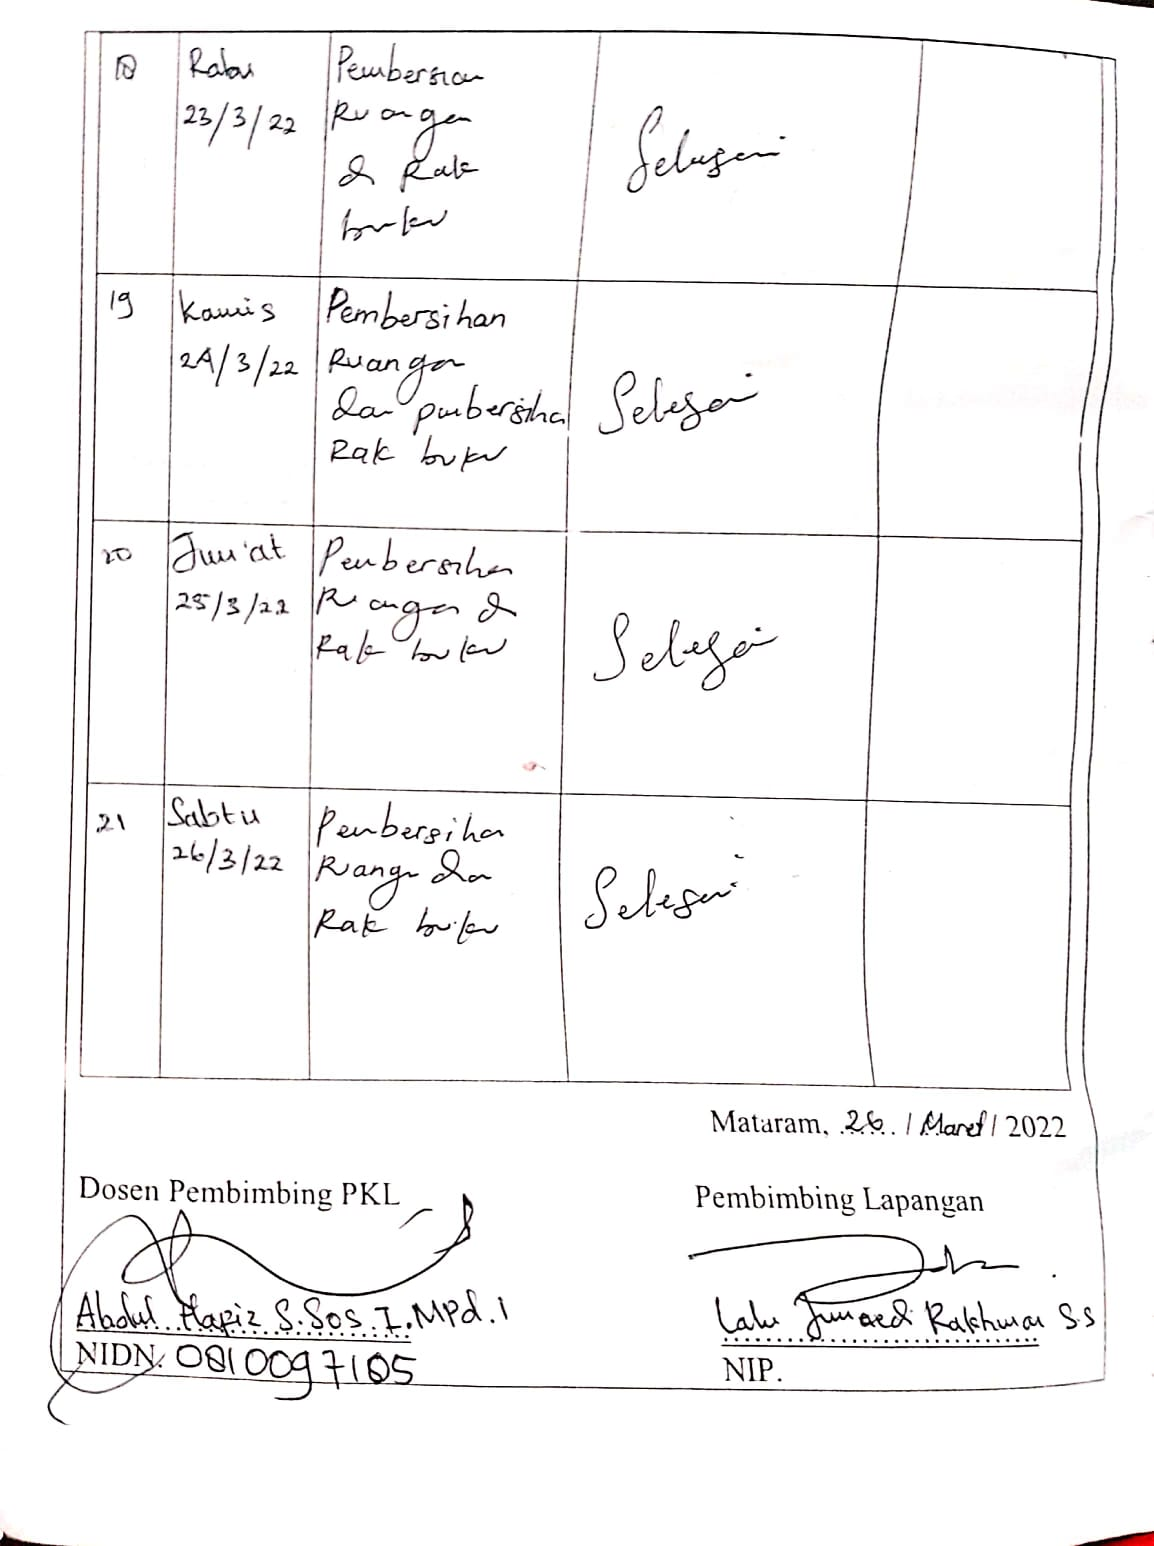 18 Rabu Pembersian
23/3/22 Ruangan
& Rak
buku
Selesai
19 Kamis Pembersihan
24/3/22 Ruangan
dan pembersihan
Rak buku
Selesai
20 Jum'at Pembersihan
25/3/22 Ruangan &
Rak buku
Selesai
21 Sabtu Pembersihan
26/3/22 Ruangan dan
Rak buku
Selesai
Mataram, 26 / Maret / 2022
Dosen Pembimbing PKL
Abdul Hafiz S.Sos.I.MPd.I
NIDN. 0810097105
Pembimbing Lapangan
Lalu Junaedi Rakhman S.S
NIP.